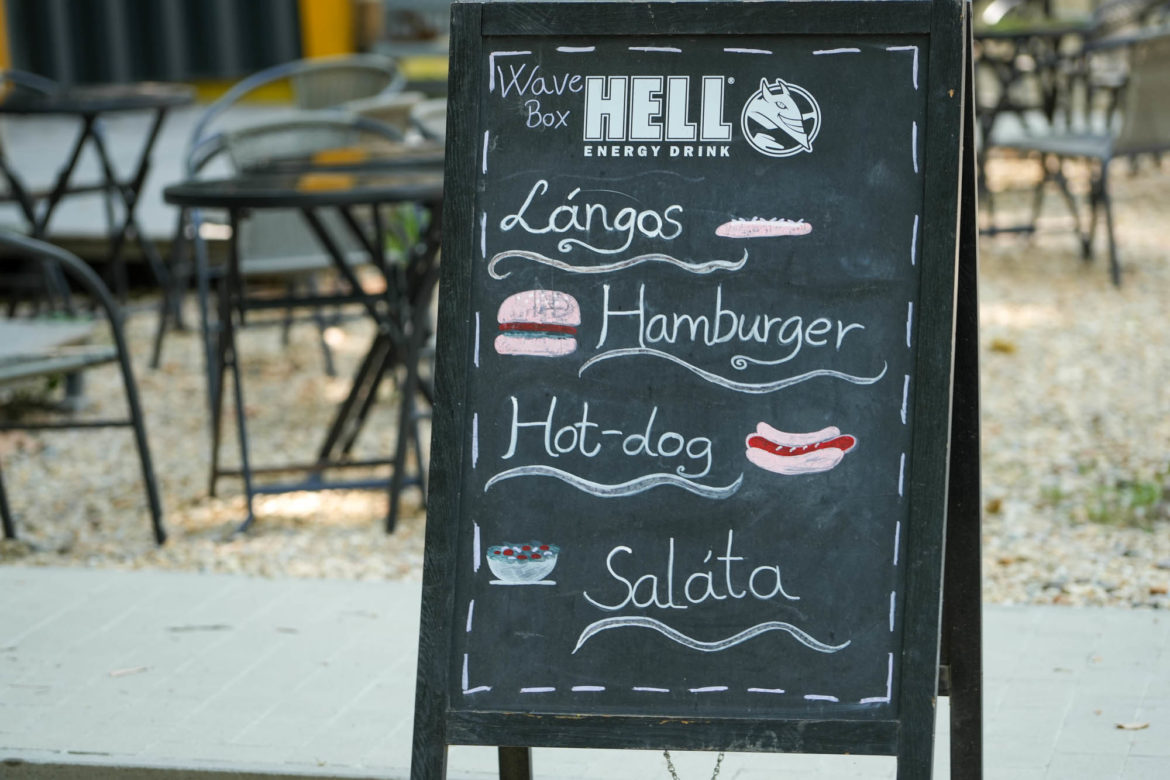 Wave
Box
HELL®
ENERGY DRINK
Lángos
Hamburger
Hot-dog
Saláta